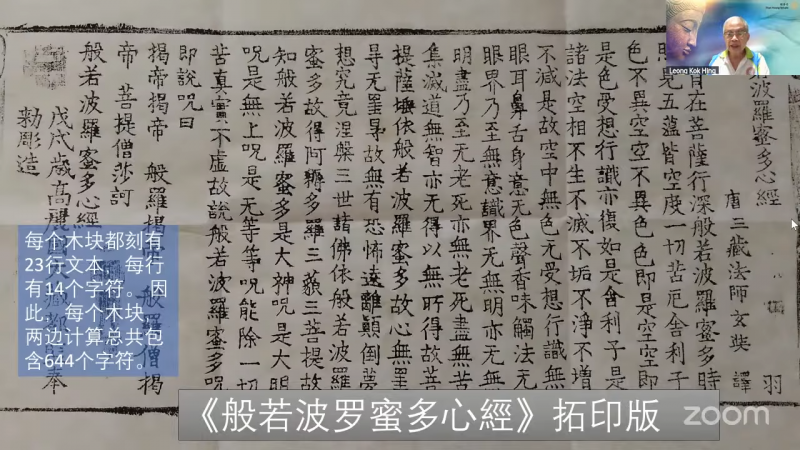 Leong Kok Hing
波羅蜜多心經 羽
唐三藏法師玄奘 譯
在菩薩行深般若波羅蜜多時
見五蘊皆空度一切苦厄舍利子
色不異空空不異色色即是空空即
是色受想行識亦復如是舍利子是
諸法空相不生不滅不垢不淨不增
不減是故空中無色无受想行識無
眼耳鼻舌身意无色聲香味觸法无
眼界乃至無意識界无無明亦无無
明盡乃至无老死亦無老死盡無苦
集滅道無智亦无得以無所得故菩
提薩埵依般若波羅蜜多故心無罣
㝵无罣㝵故無有恐怖遠離顛倒夢
想究竟涅槃三世諸佛依般若波羅
蜜多故得阿耨多羅三藐三菩提故
知般若波羅蜜多是大神呪是大明
呪是無上呪是无等等呪能除一切
苦真實不虛故說般若波羅蜜多呪
即說呪曰
揭帝揭帝 般羅揭帝 般羅僧揭
帝 菩提僧莎訶
般若波羅蜜多心經
戊戌歲高麗國大藏都監奉
勑彫造
每个木块都刻有
23行文本，每行
有14个字符。因
此，每个木块，
两边计算总共包
含644个字符。
《般若波罗蜜多心經》拓印版
zoom